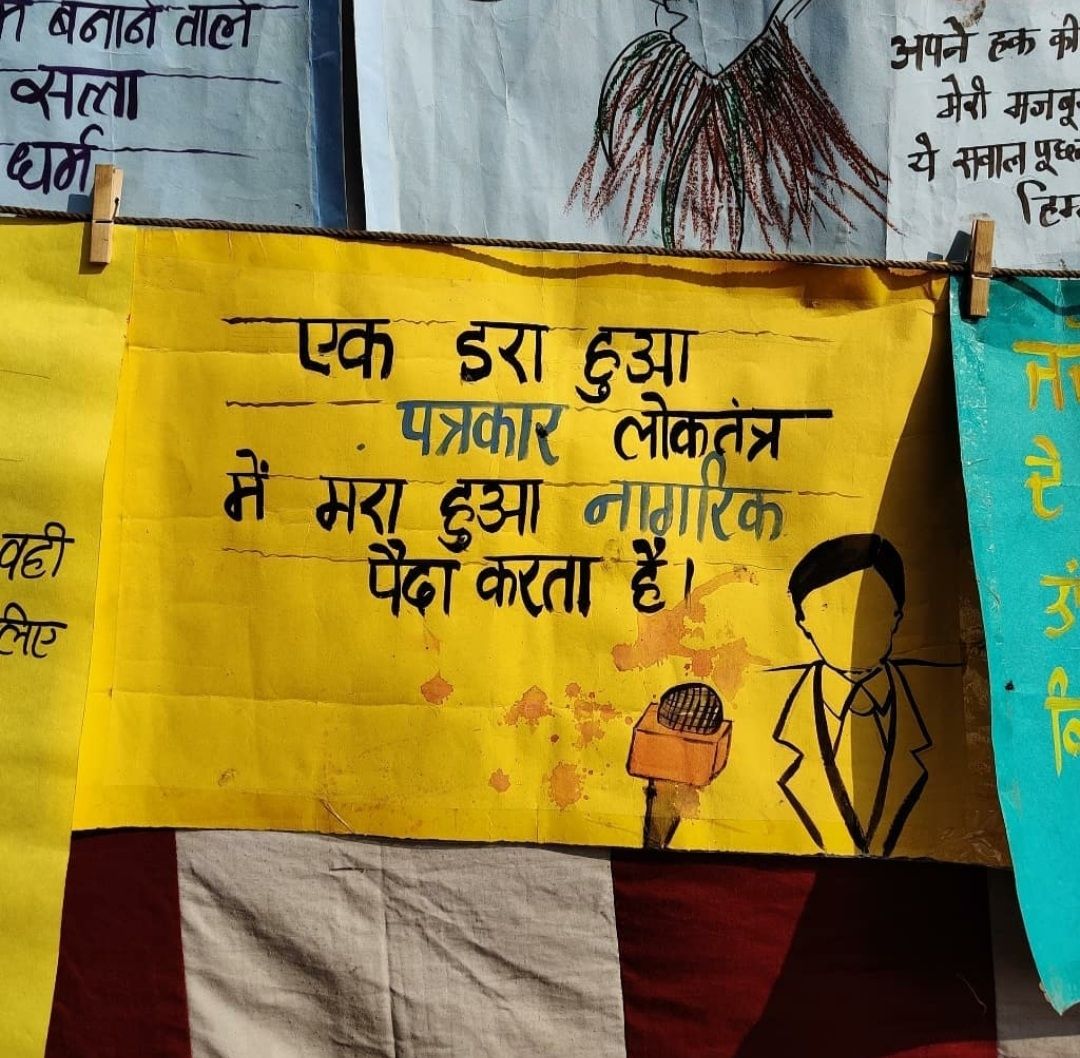 बनाने वाले
सत्ता
धर्म
अपने हक की
मेरी
ये सवाल
एक डरा हुआ
पत्रकार लोकतंत्र
में मरा हुआ नागरिक
पैदा करता है।
वही
लिए
दे